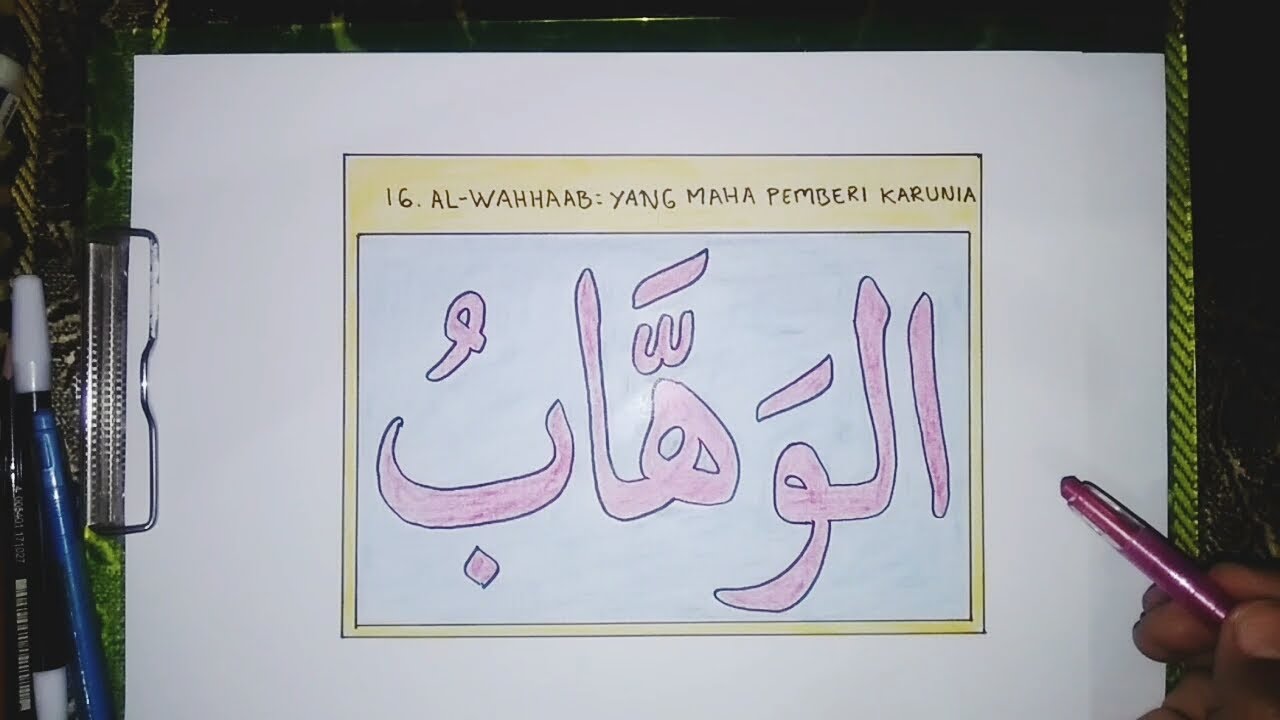 16. AL-WAHHAAB: YANG MAHA PEMBERI KARUNIA
الوَهَّابُ